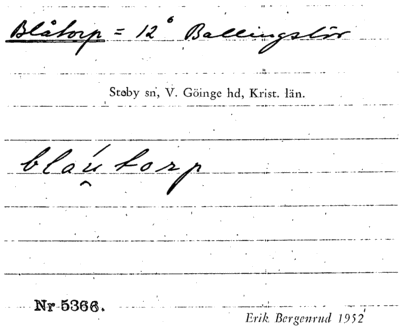 Blåtorp = 12⁶ Ballingslöv
Stoby sn, V. Göinge hd, Krist. län.
bláu̯torp
Nr 5366.
Erik Bergenrud 1952